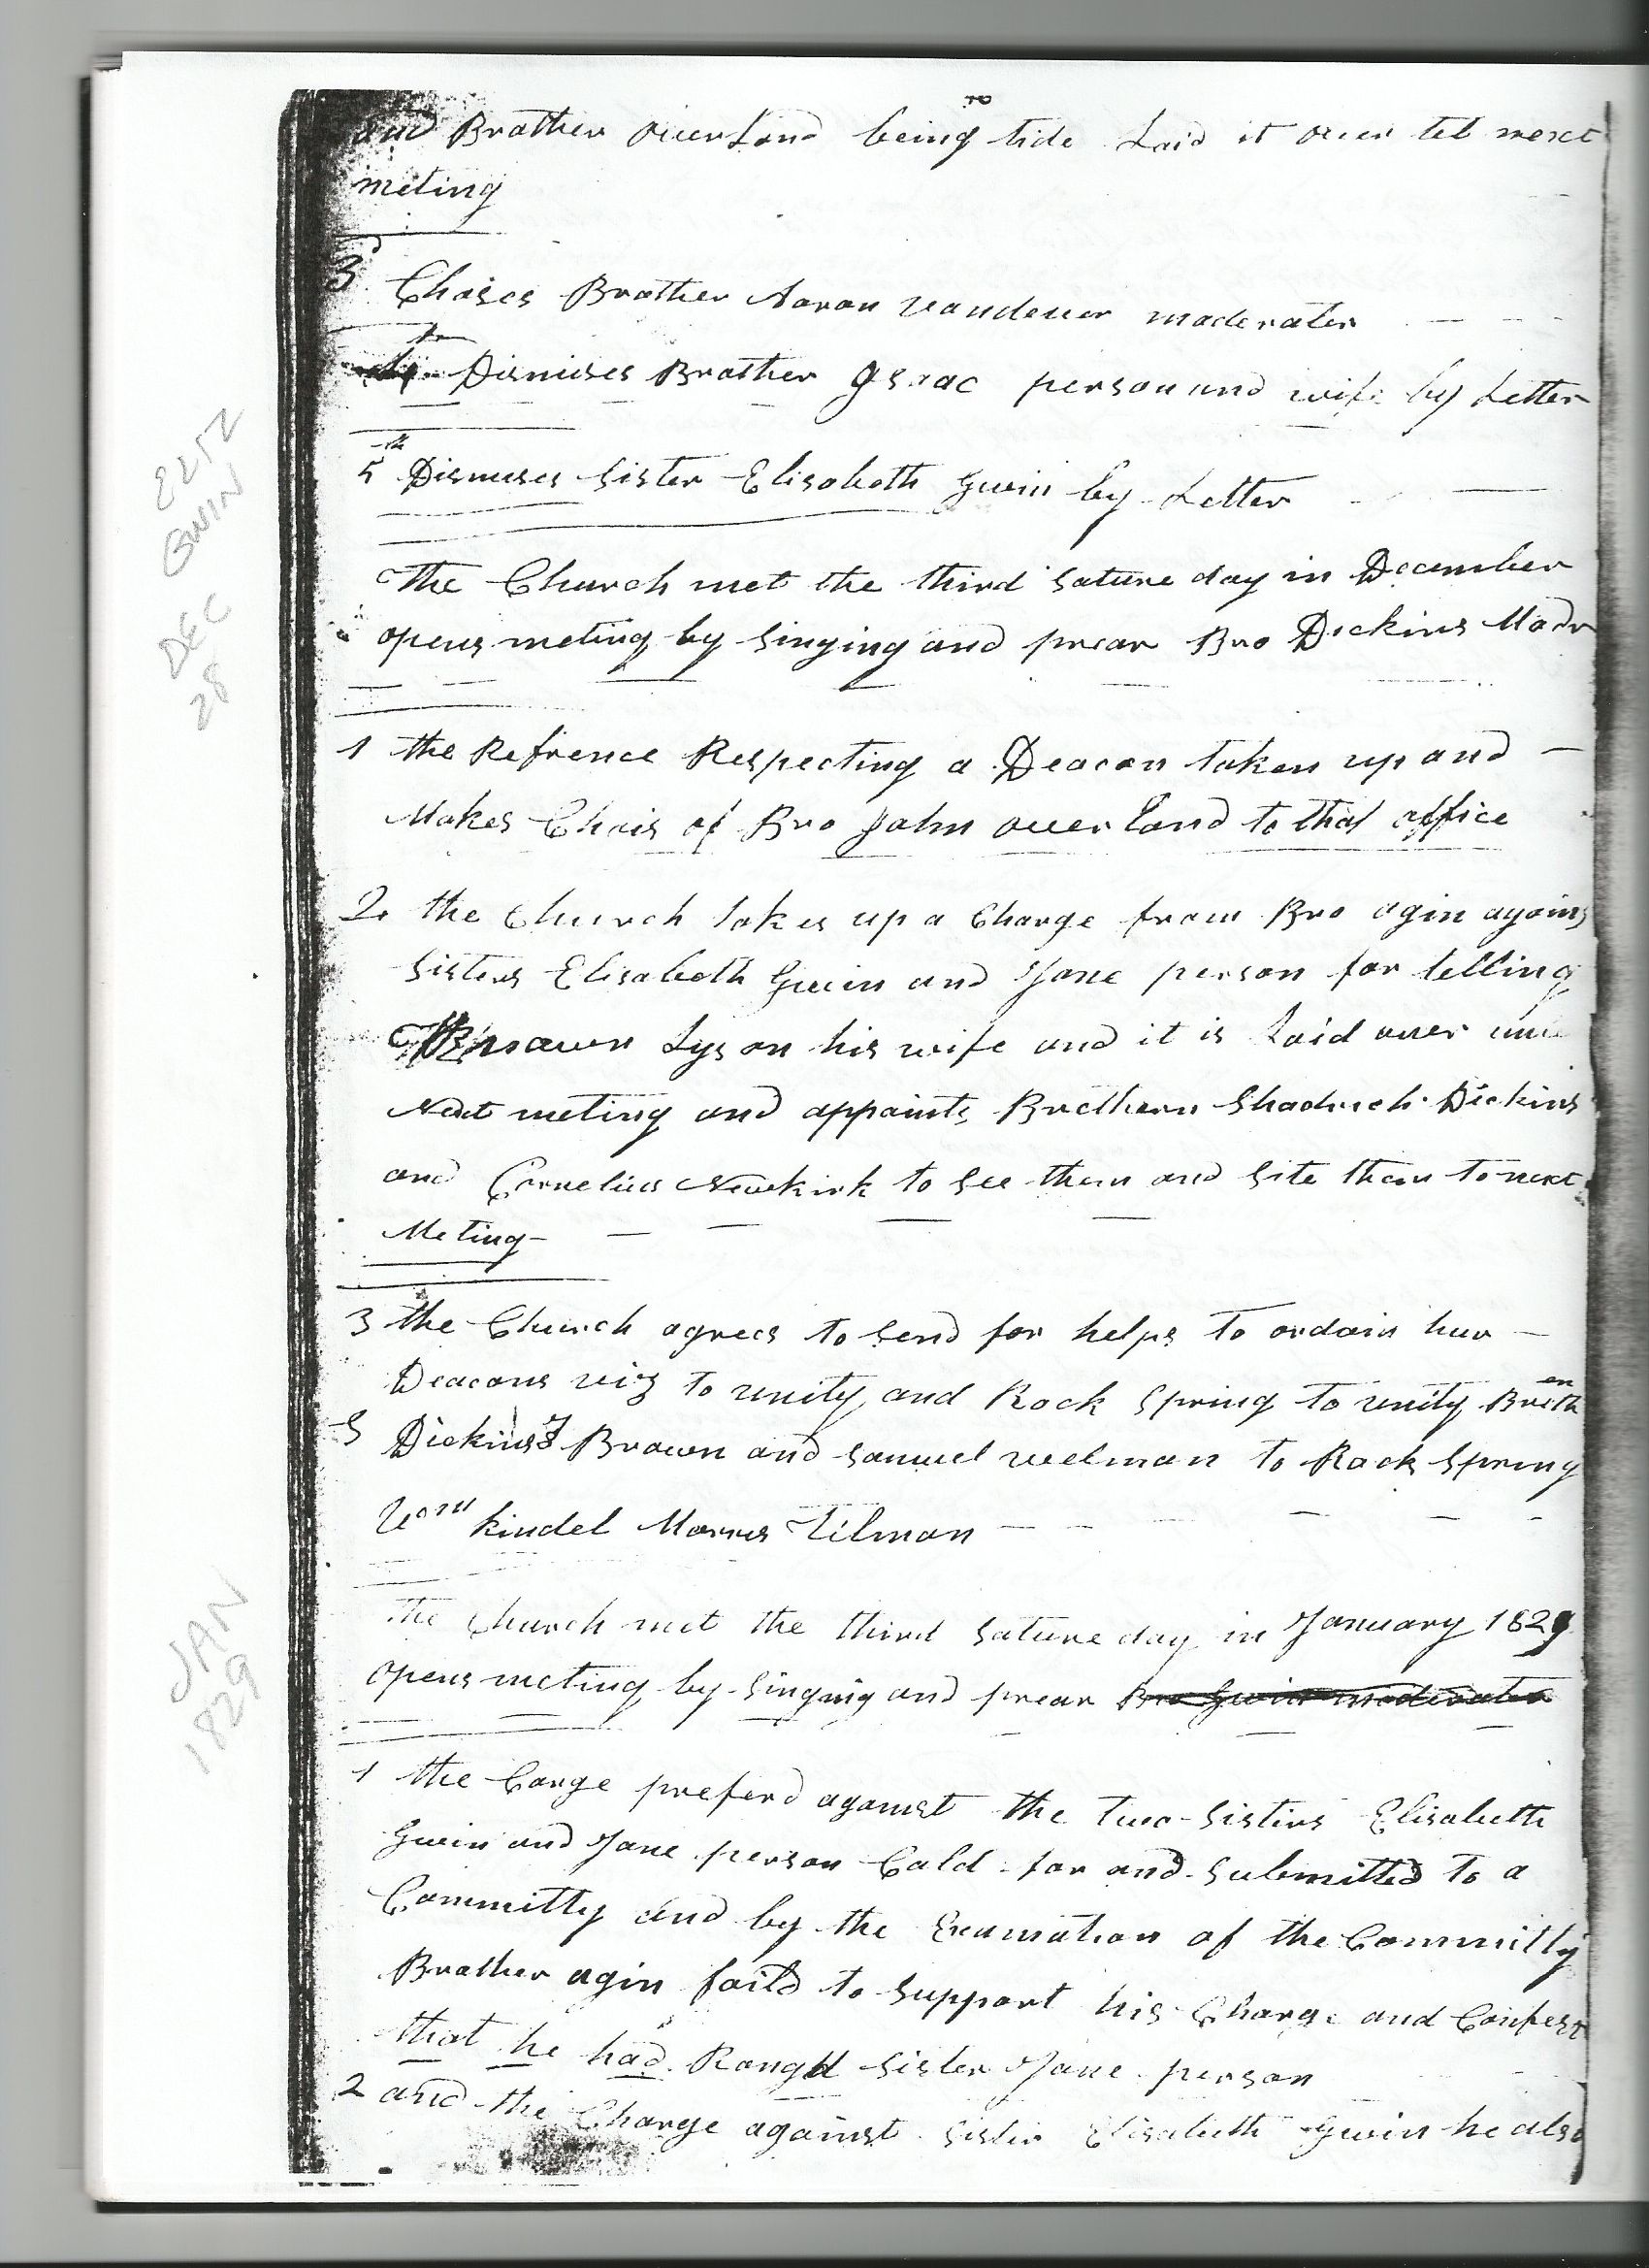 and Brother overland being tide Laid it over tel next
meting
3 Choses Brother Aaron vandever moderater
Dismises Brother Isaac person and wife by Letter
5th Dismises Sister Elisabeth Gwin by Letter
ELIZ
GWIN
DEC
28
The Church met the third Sature day in December
opens meting by Singing and prear Bro Dickins Modr
1 the Refrence Respecting a Deacon taken up and
Makes Chois of Bro John overland to that office
2. the Church takes up a Charge from Bro agin agains
Sisters Elisabeth Gwin and Jane person for telling
Lys on his wife and it is Laid over
Next meting and appoints Brethern Shadrech Dickins
and Cornelius Newkirk to See them and Site them to next
Meting
3 the Church agrees to Send for helps to ordain hur
Deacons viz to unity and Rock Spring to unity Brethen
S Dickins J Brown and Samuel welman to Rock Spring
kindel Morris Tilman
JAN
1829
The Church met the third Sature day in January 1829
opens meting by Singing and prear Bro Gwin moderater
1 the Carge preferd against the two Sisters Elisabeth
Gwin and Jane person Cald for and Submitted to a
Committy and by the Exumation of the Committy
Brother agin faild to Support his Charge and Confest
that he had Rongd Sister Jane person
2 and the Charge against Sister Elisabeth Gwin he also